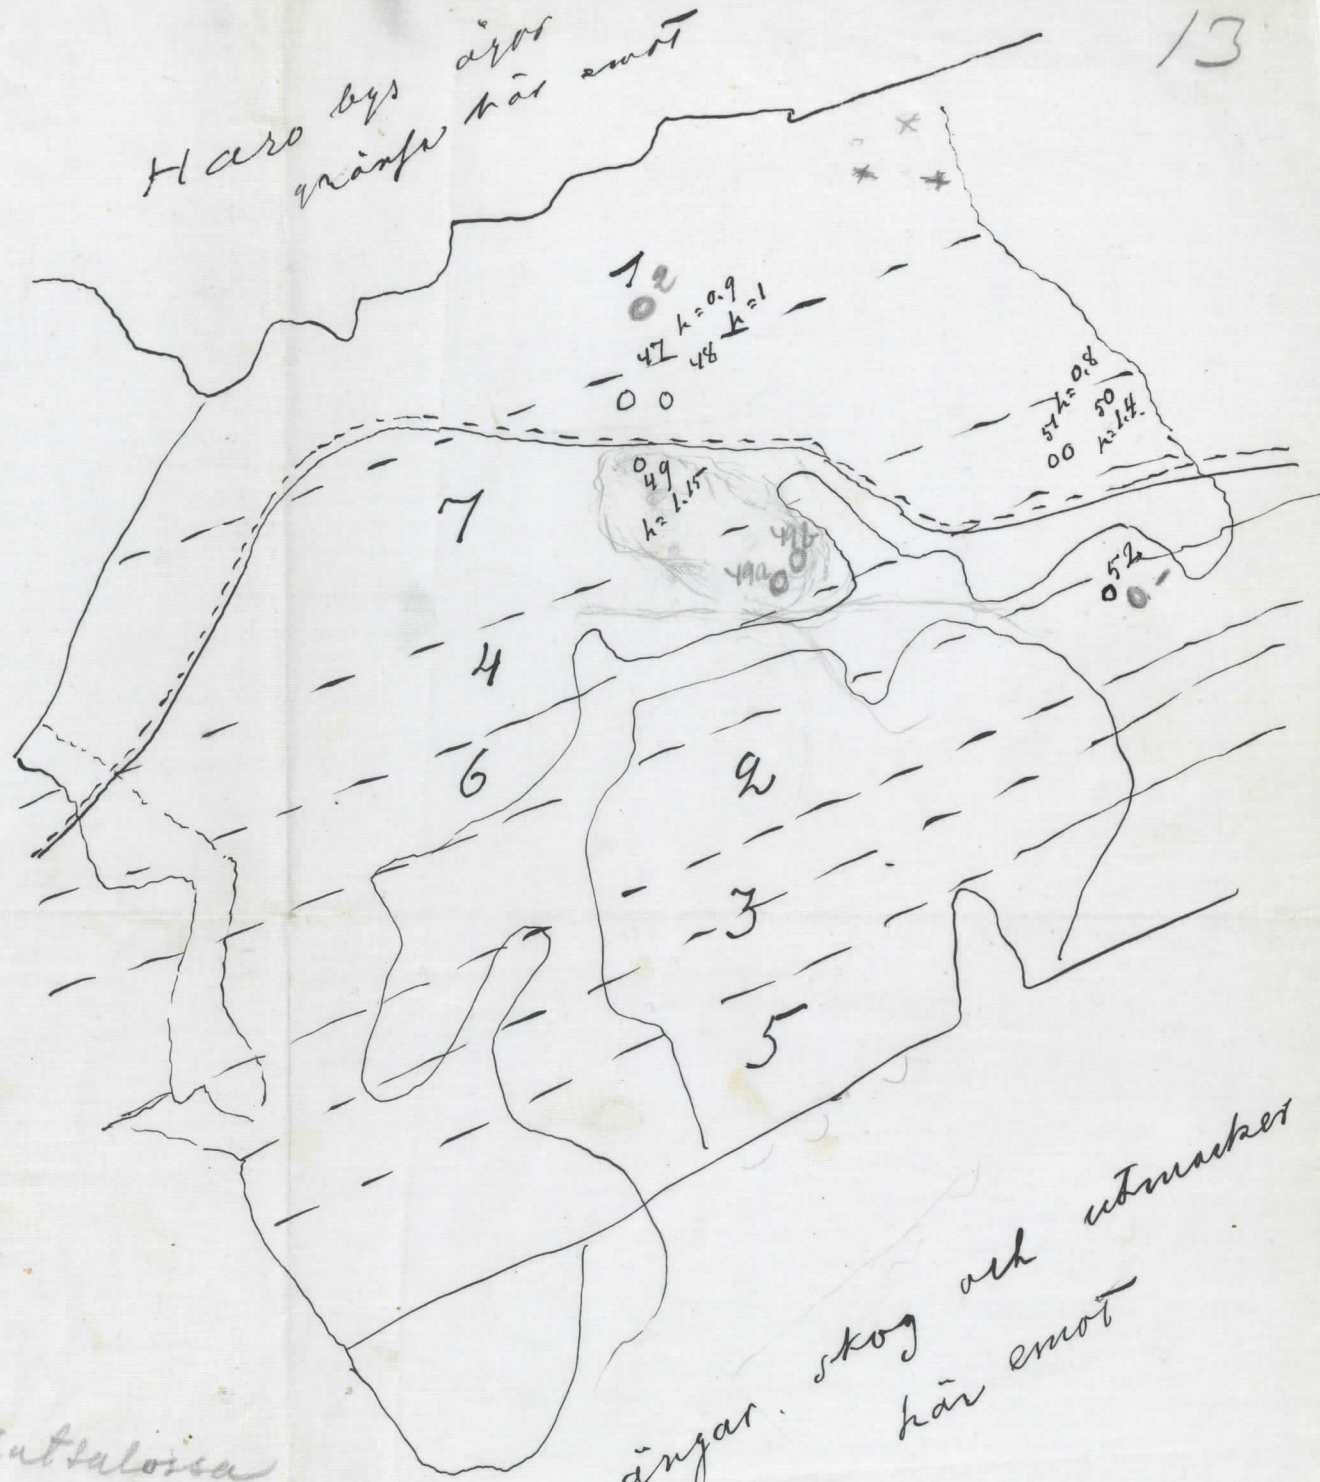 13
Haro bys ägor
gränsa här emot
1 2
47 h=0.9
48 h=1
51 h=0,8
50
h=1.4.
7
49
h=1.15
49b
49a
52
4
6
2
3
5
ängar. skog och utmarker
här emot